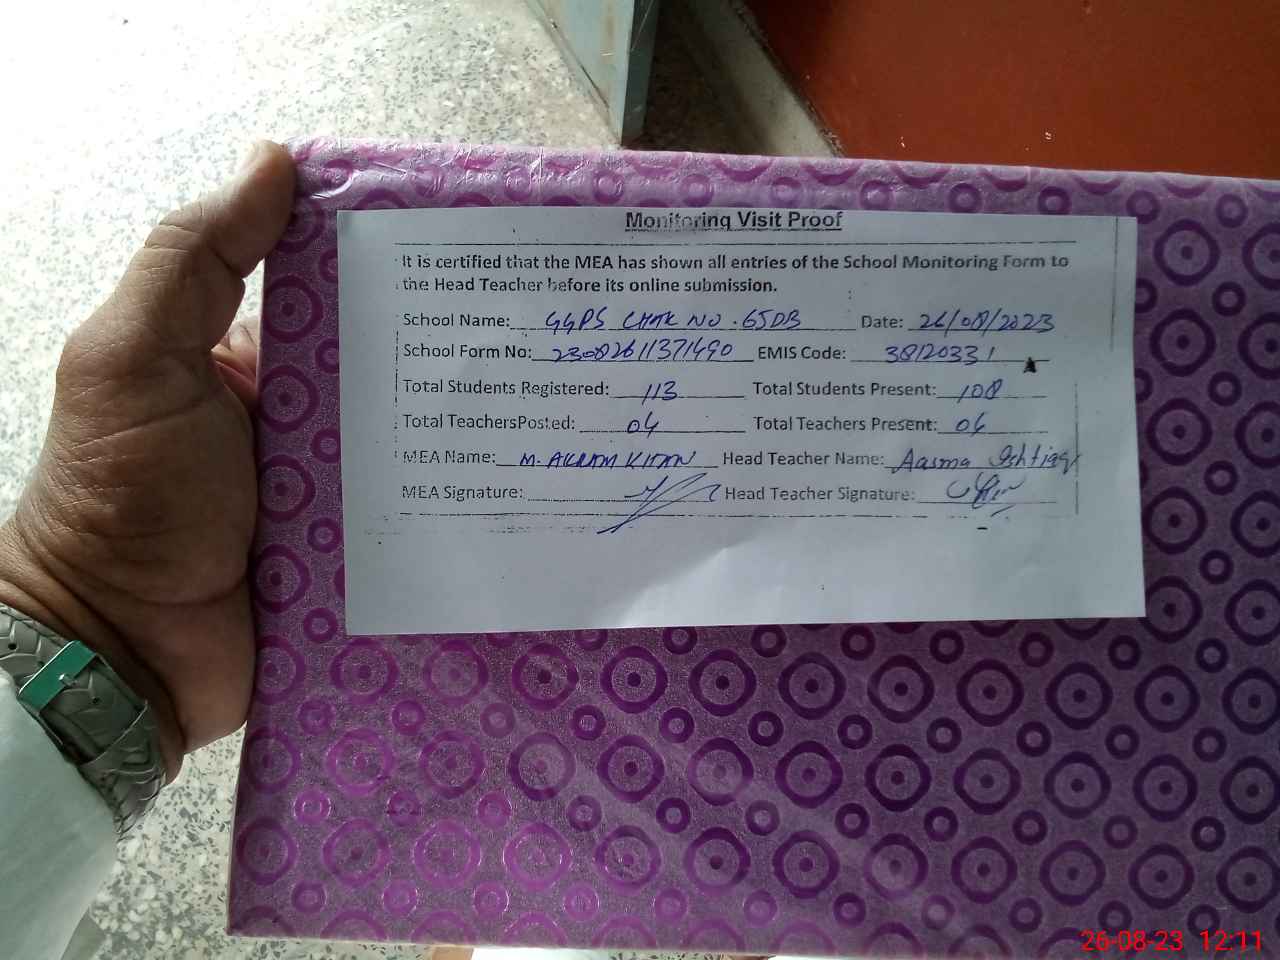 Monitoring Visit Proof
It is certified that the MEA has shown all entries of the School Monitoring Form to
the Head Teacher before its online submission.
School Name: GGPS CHAK NO. 65DB Date: 26/08/2023
School Form No: 23082611371490 EMIS Code: 38120331
Total Students Registered: 113 Total Students Present: 108
Total TeachersPosted: 04 Total Teachers Present: 04
MEA Name: M. AKRAM KHAN Head Teacher Name: Aasma Ishtiaq
MEA Signature: Head Teacher Signature:
26-08-23 12:11